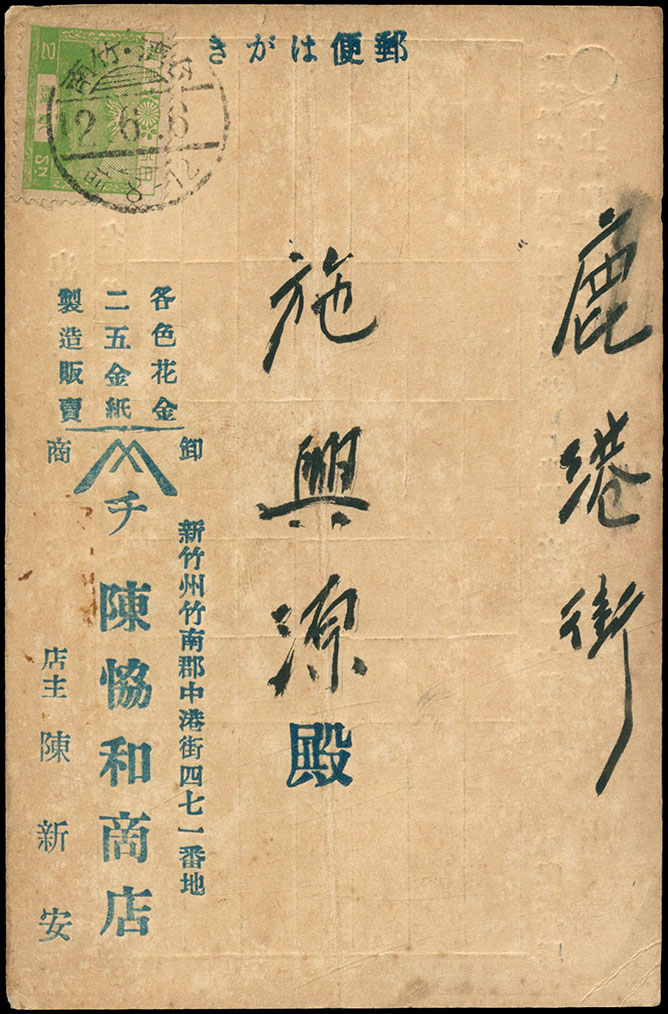 郵便はがき
臺灣・竹南
12.6.6
前8-12
2
Sɴ
鹿港街
施興源殿
各色花金
二五金紙
製造販賣
卸商
チ
新竹州竹南郡中港街四七一番地
陳協和商店
店主 陳新安